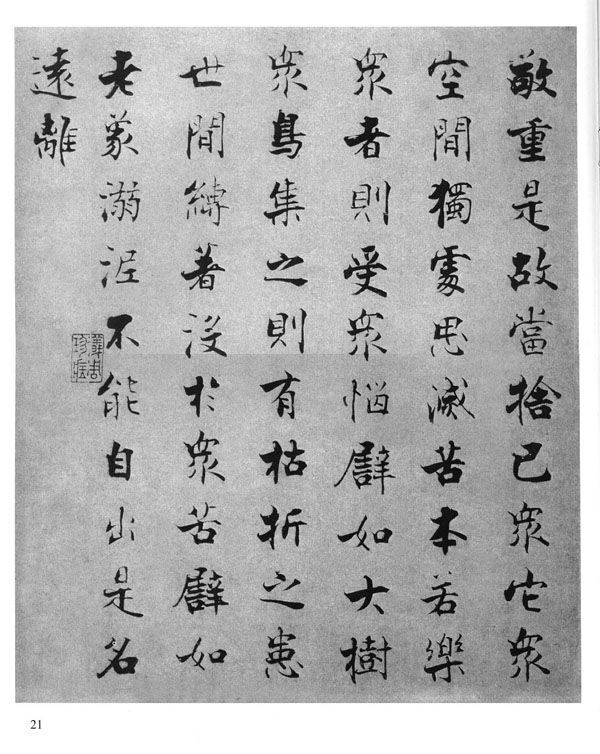 敬重是故當捨己衆它衆
空閒獨處思滅苦本若樂
衆者則受衆惱譬如大樹
衆鳥集之則有枯折之患
世間縛著沒於衆苦譬如
老象溺泥不能自出是名
遠離
21